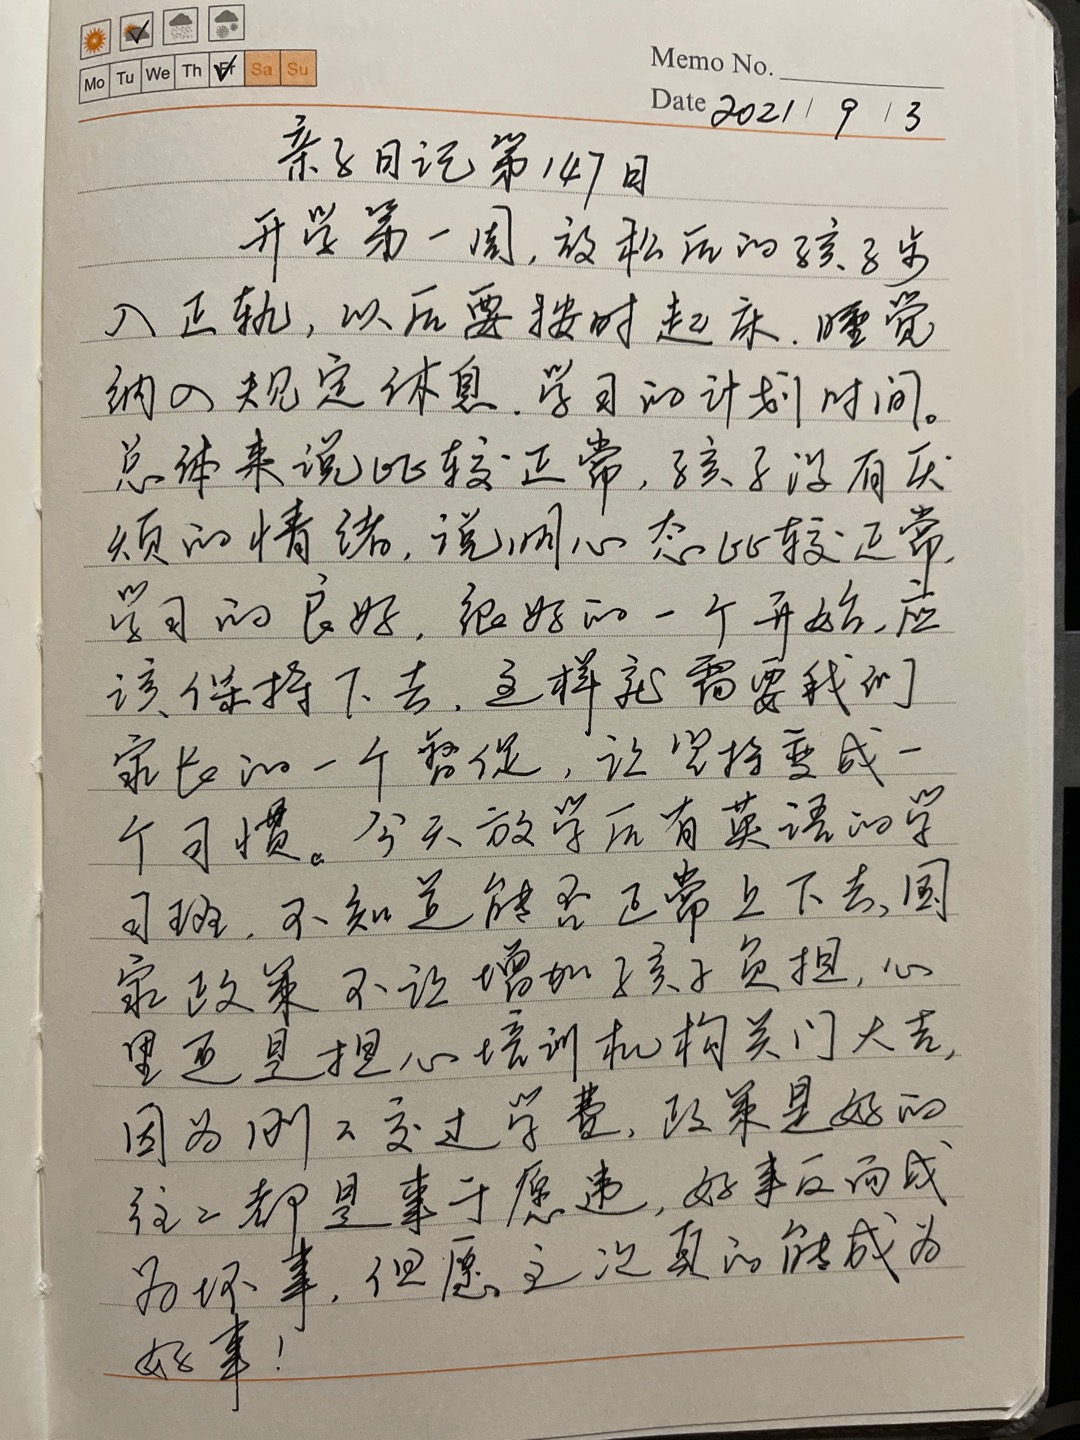 Mo Tu We Th Fr Sa Su
Memo No.
Date 2021 / 9 / 3
亲子日记第147日
开学第一周,放松后的孩子步
入正轨,以后要按时起床.睡觉
纳入规定休息.学习的计划时间。
总体来说比较正常,孩子没有厌
烦的情绪,说明心态比较正常,
学习的良好,很好的一个开始,应
该保持下去,这样就需要我们
家长的一个督促,让坚持变成一
个习惯。今天放学后有英语的学
习班,不知道能否正常上下去,国
家政策不让增加孩子负担,心
里还是担心培训机构关门大吉,
因为刚刚交过学费,政策是好的
往往都是事于愿违,好事反而成
为坏事,但愿这次真的能成为
好事!